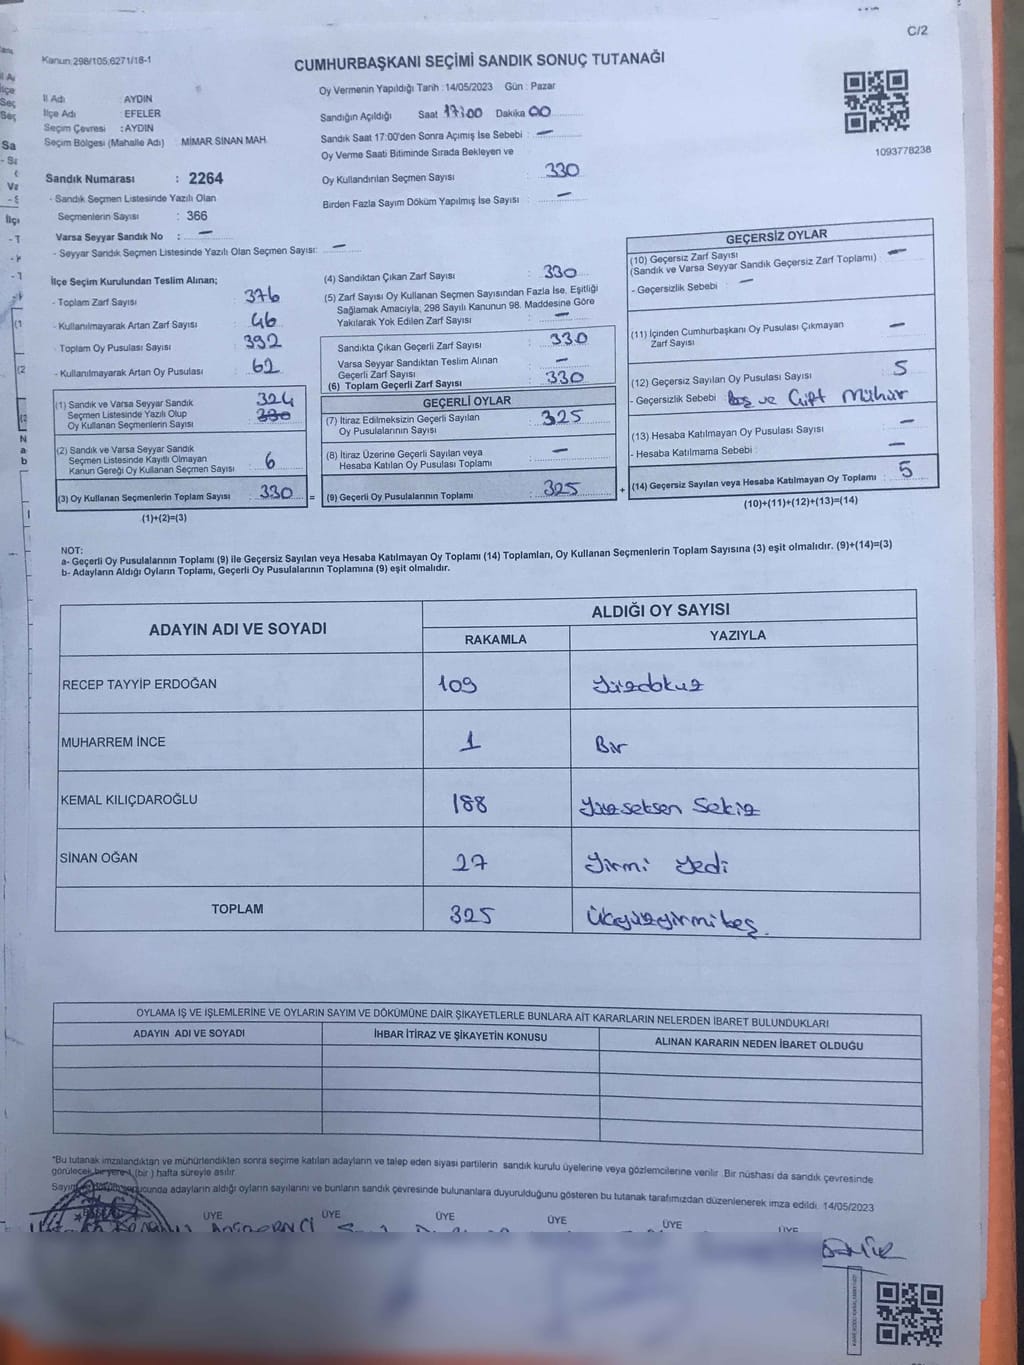 C/2
Kanun:298/105;6271/18-1
CUMHURBAŞKANI SEÇİMİ SANDIK SONUÇ TUTANAĞI
İl Adı : AYDIN
İlçe Adı : EFELER
Seçim Çevresi : AYDIN
Seçim Bölgesi (Mahalle Adı) : MİMAR SİNAN MAH.
Sandık Numarası : 2264
- Sandık Seçmen Listesinde Yazılı Olan
Seçmenlerin Sayısı : 366
Varsa Seyyar Sandık No : —
- Seyyar Sandık Seçmen Listesinde Yazılı Olan Seçmen Sayısı: —
Oy Vermenin Yapıldığı Tarih : 14/05/2023 Gün : Pazar
Sandığın Açıldığı Saat 17:00 Dakika 00
Sandık Saat 17:00'den Sonra Açımış İse Sebebi : —
Oy Verme Saati Bitiminde Sırada Bekleyen ve
Oy Kullandırılan Seçmen Sayısı : 330
Birden Fazla Sayım Döküm Yapılmış İse Sayısı : —
1093778238
İlçe Seçim Kurulundan Teslim Alınan;
- Toplam Zarf Sayısı : 376
- Kullanılmayarak Artan Zarf Sayısı : 46
- Toplam Oy Pusulası Sayısı : 392
- Kullanılmayarak Artan Oy Pusulası : 62
(1) Sandık ve Varsa Seyyar Sandık 324
Seçmen Listesinde Yazılı Olup 330
Oy Kullanan Seçmenlerin Sayısı
(2) Sandık ve Varsa Seyyar Sandık
Seçmen Listesinde Kayıtlı Olmayan
Kanun Gereği Oy Kullanan Seçmen Sayısı : 6
(3) Oy Kullanan Seçmenlerin Toplam Sayısı : 330 =
(1)+(2)=(3)
(4) Sandıktan Çıkan Zarf Sayısı : 330
(5) Zarf Sayısı Oy Kullanan Seçmen Sayısından Fazla İse, Eşitliği
Sağlamak Amacıyla, 298 Sayılı Kanunun 98. Maddesine Göre
Yakılarak Yok Edilen Zarf Sayısı : —
Sandıkta Çıkan Geçerli Zarf Sayısı : 330
Varsa Seyyar Sandıktan Teslim Alınan
Geçerli Zarf Sayısı : —
(6) Toplam Geçerli Zarf Sayısı : 330
GEÇERLİ OYLAR
(7) İtiraz Edilmeksizin Geçerli Sayılan
Oy Pusulalarının Sayısı : 325
(8) İtiraz Üzerine Geçerli Sayılan veya
Hesaba Katılan Oy Pusulası Toplamı : —
(9) Geçerli Oy Pusulalarının Toplamı : 325 +
GEÇERSİZ OYLAR
(10) Geçersiz Zarf Sayısı
(Sandık ve Varsa Seyyar Sandık Geçersiz Zarf Toplamı) : —
- Geçersizlik Sebebi : —
(11) İçinden Cumhurbaşkanı Oy Pusulası Çıkmayan
Zarf Sayısı : —
(12) Geçersiz Sayılan Oy Pusulası Sayısı : 5
- Geçersizlik Sebebi : Boş ve Çift Mühür
(13) Hesaba Katılmayan Oy Pusulası Sayısı : —
- Hesaba Katılmama Sebebi : —
(14) Geçersiz Sayılan veya Hesaba Katılmayan Oy Toplamı : 5
(10)+(11)+(12)+(13)=(14)
NOT:
a- Geçerli Oy Pusulalarının Toplamı (9) ile Geçersiz Sayılan veya Hesaba Katılmayan Oy Toplamı (14) Toplamları, Oy Kullanan Seçmenlerin Toplam Sayısına (3) eşit olmalıdır. (9)+(14)=(3)
b- Adayların Aldığı Oyların Toplamı, Geçerli Oy Pusulalarının Toplamına (9) eşit olmalıdır.
ADAYIN ADI VE SOYADI ALDIĞI OY SAYISI
RAKAMLA YAZIYLA
RECEP TAYYİP ERDOĞAN 109 Yüzdokuz
MUHARREM İNCE 1 Bir
KEMAL KILIÇDAROĞLU 188 Yüzseksen Sekiz
SİNAN OĞAN 27 Yirmi Yedi
TOPLAM 325 Üçyüzyirmibeş.
OYLAMA İŞ VE İŞLEMLERİNE VE OYLARIN SAYIM VE DÖKÜMÜNE DAİR ŞİKAYETLERLE BUNLARA AİT KARARLARIN NELERDEN İBARET BULUNDUKLARI
ADAYIN ADI VE SOYADI İHBAR İTİRAZ VE ŞİKAYETİN KONUSU ALINAN KARARIN NEDEN İBARET OLDUĞU
*Bu tutanak imzalandıktan ve mühürlendikten sonra seçime katılan adayların ve talep eden siyasi partilerin sandık kurulu üyelerine veya gözlemcilerine verilir. Bir nüshası da sandık çevresinde
görülecek bir yere 1 (bir ) hafta süreyle asılır.
Sayım sonucunda adayların aldığı oyların sayılarını ve bunların sandık çevresinde bulunanlara duyurulduğunu gösteren bu tutanak tarafımızdan düzenlenerek imza edildi. 14/05/2023
ÜYE ÜYE ÜYE ÜYE ÜYE ÜYE